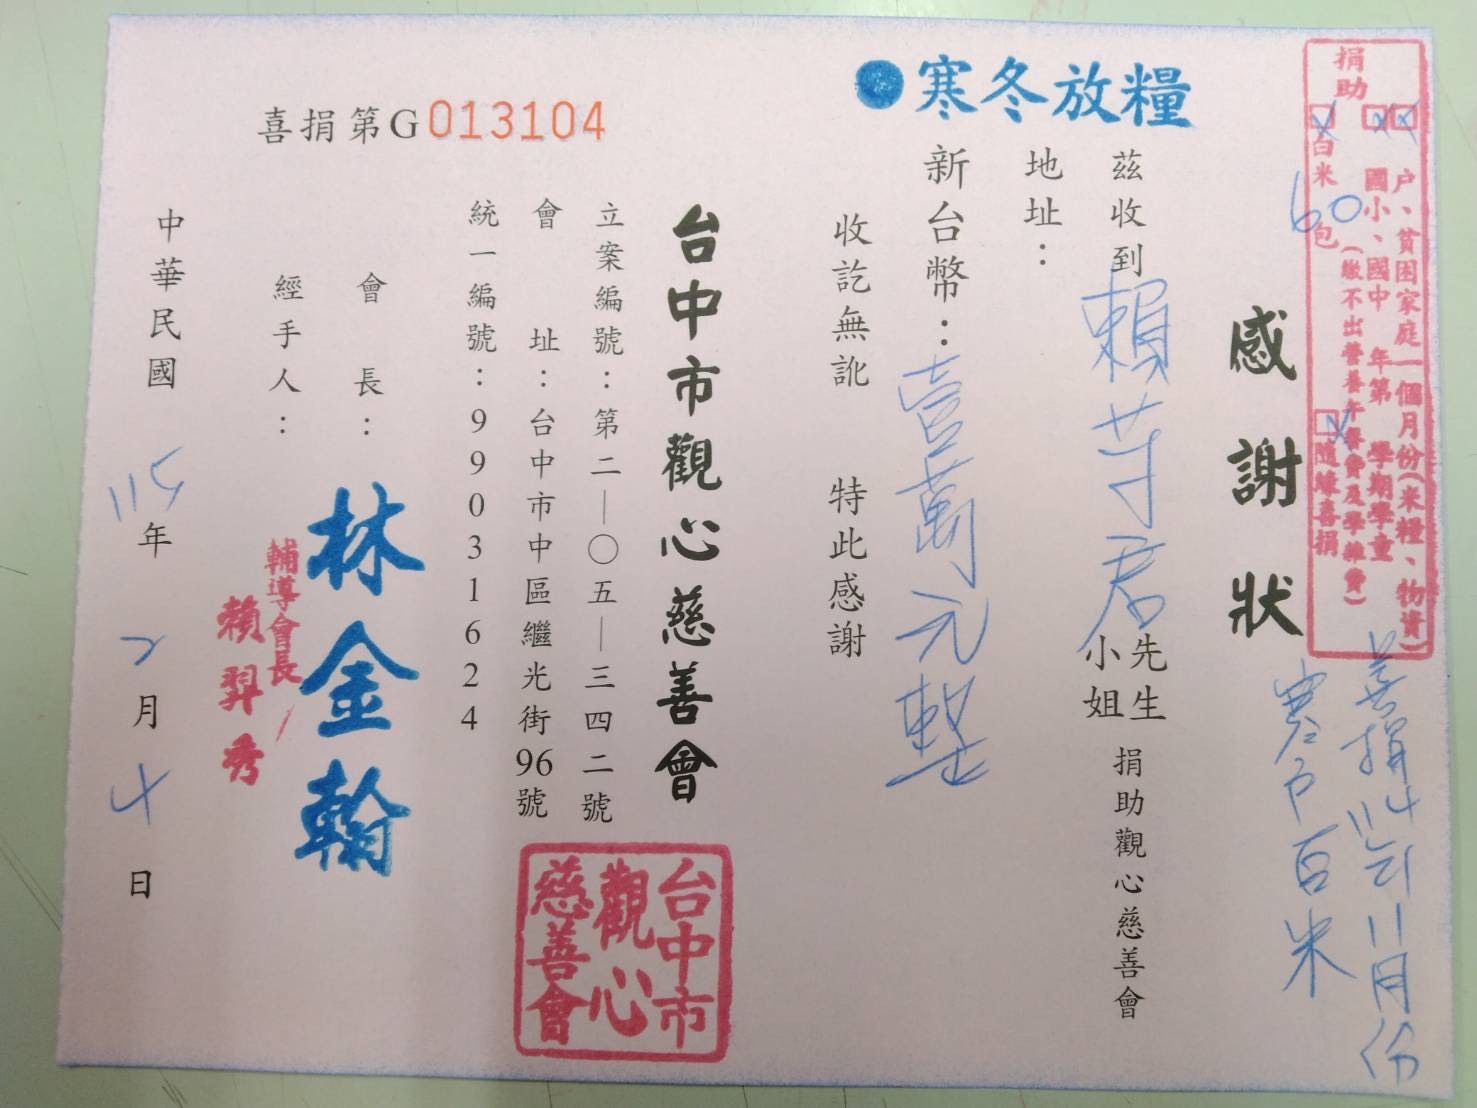 捐助
☒戶、貧困家庭一個月份(米糧、物資)
☒國小、國中 年第 學期學童
(繳不出營養午餐費及學雜費)
☒白米60包 ☒隨緣喜捐
善捐114年11月份
寒戶白米
感謝狀
●寒冬放糧
茲收到賴芋君先生小姐捐助觀心慈善會
地址：
新台幣：壹萬元整
收訖無訛 特此感謝
台中市觀心慈善會
立案編號：第二—○五—三四二號
會址：台中市中區繼光街96號
統一編號：99031624
喜捐第G013104
會長：林金翰
經手人：
輔導會長
賴羿秀
中華民國115年2月4日
台中市
觀心
慈善會